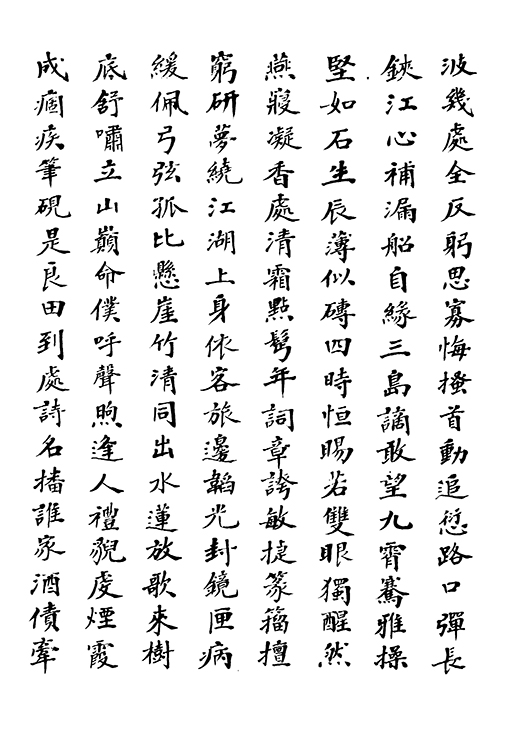 波幾處全反躬思寡悔搔首動追愆路口彈長
鋏江心補漏船自緣三島謫敢望九霄騫雅操
堅如石生辰薄似磚四時恒賜若雙眼獨醒然
燕寢凝香處清霜點鬢年詞章誇敏捷篆籀擅
窮研夢繞江湖上身依客旅邊韜光封鏡匣病
緩佩弓弦孤比懸崖竹清同出水蓮放歌來樹
底舒嘯立山巔命僕呼聲煦逢人禮貌虔煙霞
成痼疾筆硯是良田到處詩名播誰家酒債牽